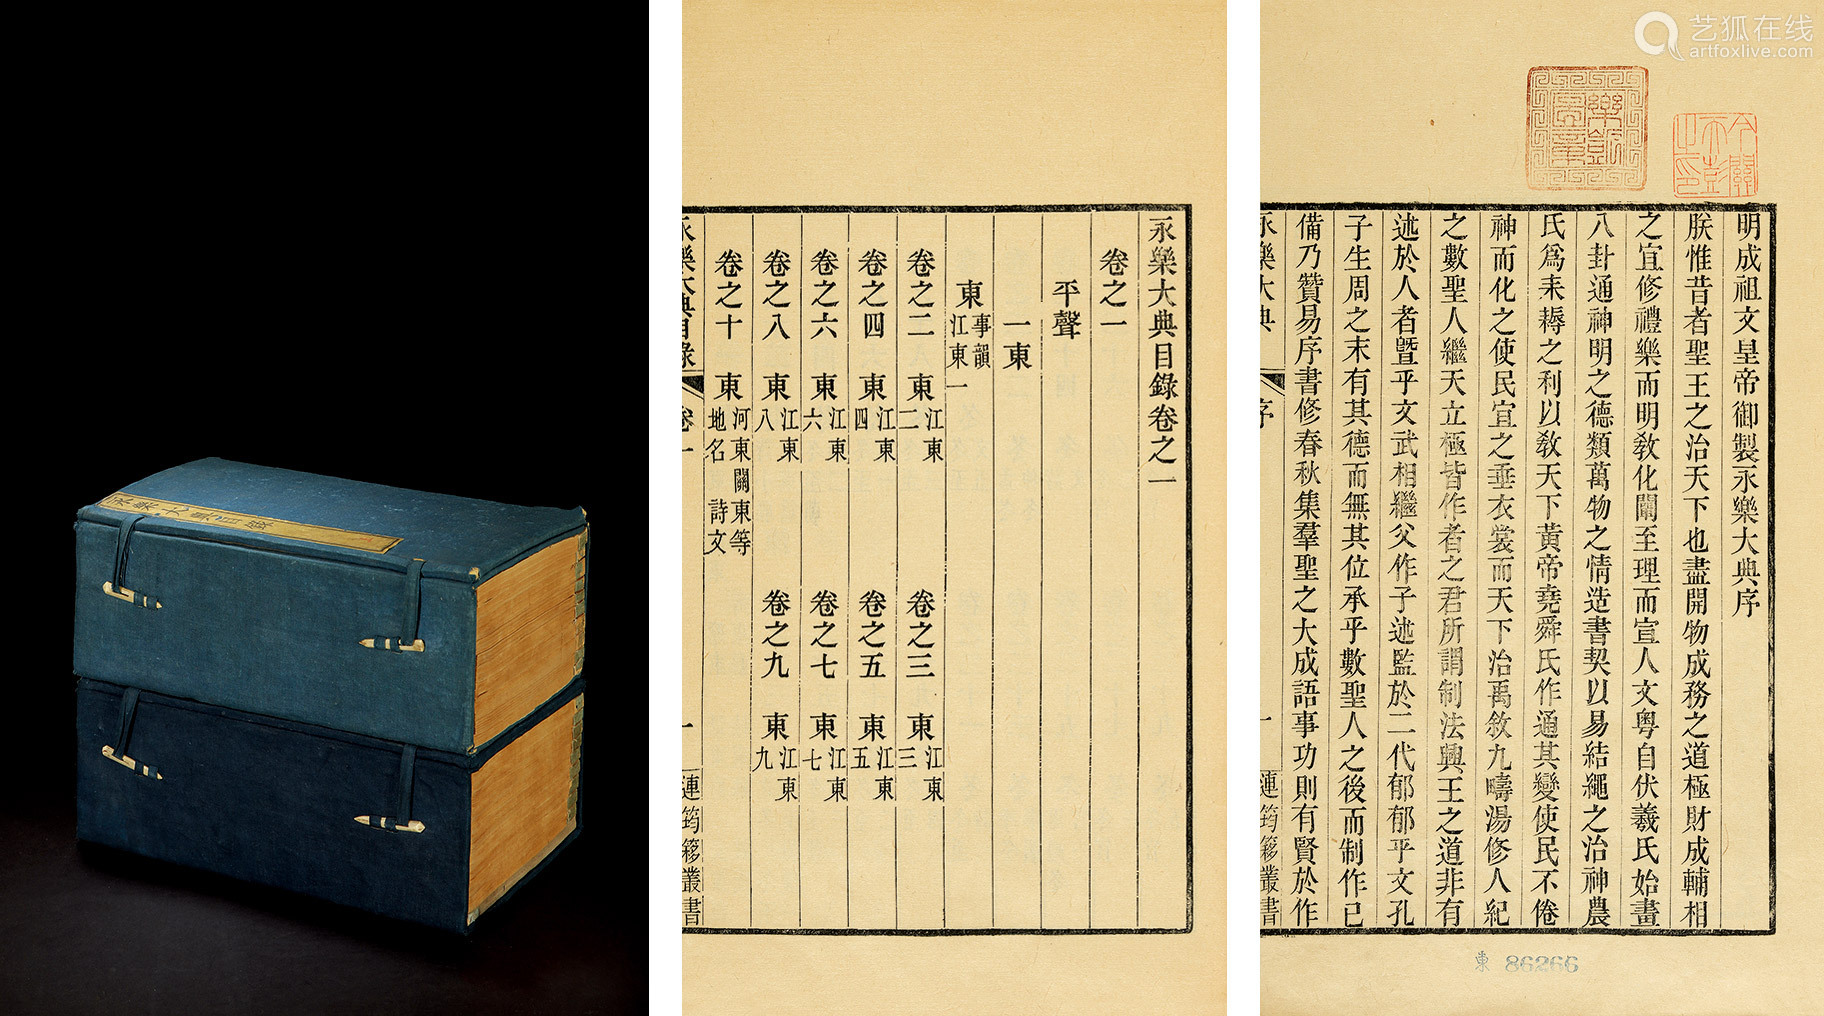 永樂大典目錄
永樂大典目錄卷之一
卷之一
平聲
一東
東 事韻 江東一
卷之二 東 江東二 卷之三 東 江東三
卷之四 東 江東四 卷之五 東 江東五
卷之六 東 江東六 卷之七 東 江東七
卷之八 東 江東八 卷之九 東 江東九
卷之十 東 河東關東等地名 詩文
永樂大典目錄 卷一 一 連筠簃叢書
艺狐在线
artfoxlive.com
明成祖文皇帝御製永樂大典序
朕惟昔者聖王之治天下也盡開物成務之道極財成輔相
之宜修禮樂而明教化闡至理而宣人文粵自伏羲氏始畫
八卦通神明之德類萬物之情造書契以易結繩之治神農
氏爲耒耨之利以敎天下黃帝堯舜氏作通其變使民不倦
神而化之使民宜之垂衣裳而天下治禹敘九疇湯修人紀
之數聖人繼天立極皆作者之君所謂制法興王之道非有
述於人者曁乎文武相繼父作子述監於二代郁郁乎文孔
子生周之末有其德而無其位承乎數聖人之後而制作已
備乃贊易序書修春秋集羣聖之大成語事功則有賢於作
永樂大典 序 一 連筠簃叢書
東 86266